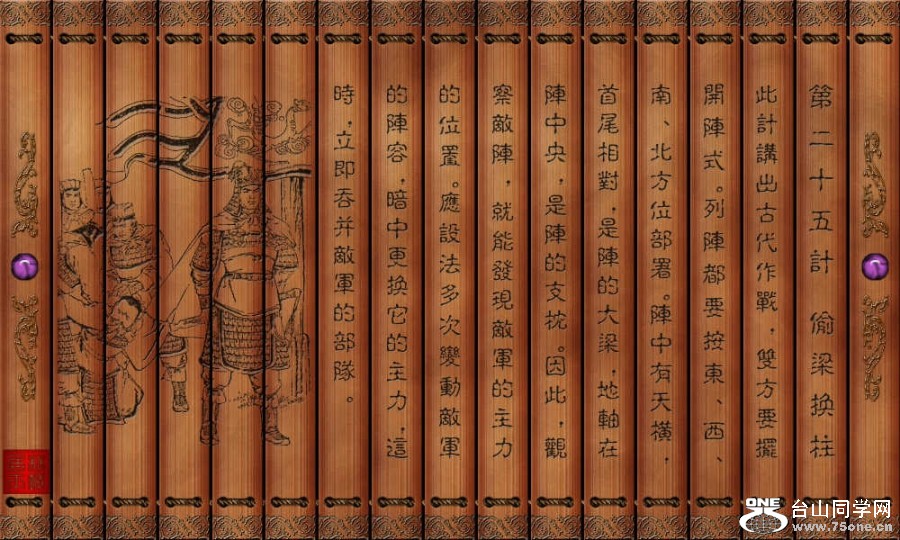 第二十五計 偷梁換柱
此計講出古代作戰，雙方要擺
開陣式。列陣都要按東、西、
南、北方位部署。陣中有天橫，
首尾相對，是陣的大梁，地軸在
陣中央，是陣的支枕。因此，觀
察敵陣，就能發現敵軍的主力
的位置。應設法多次變動敵軍
的陣容，暗中更換它的主力，這
時，立即吞并敵軍的部隊。
ONE
台山同学网
www.75one.cn